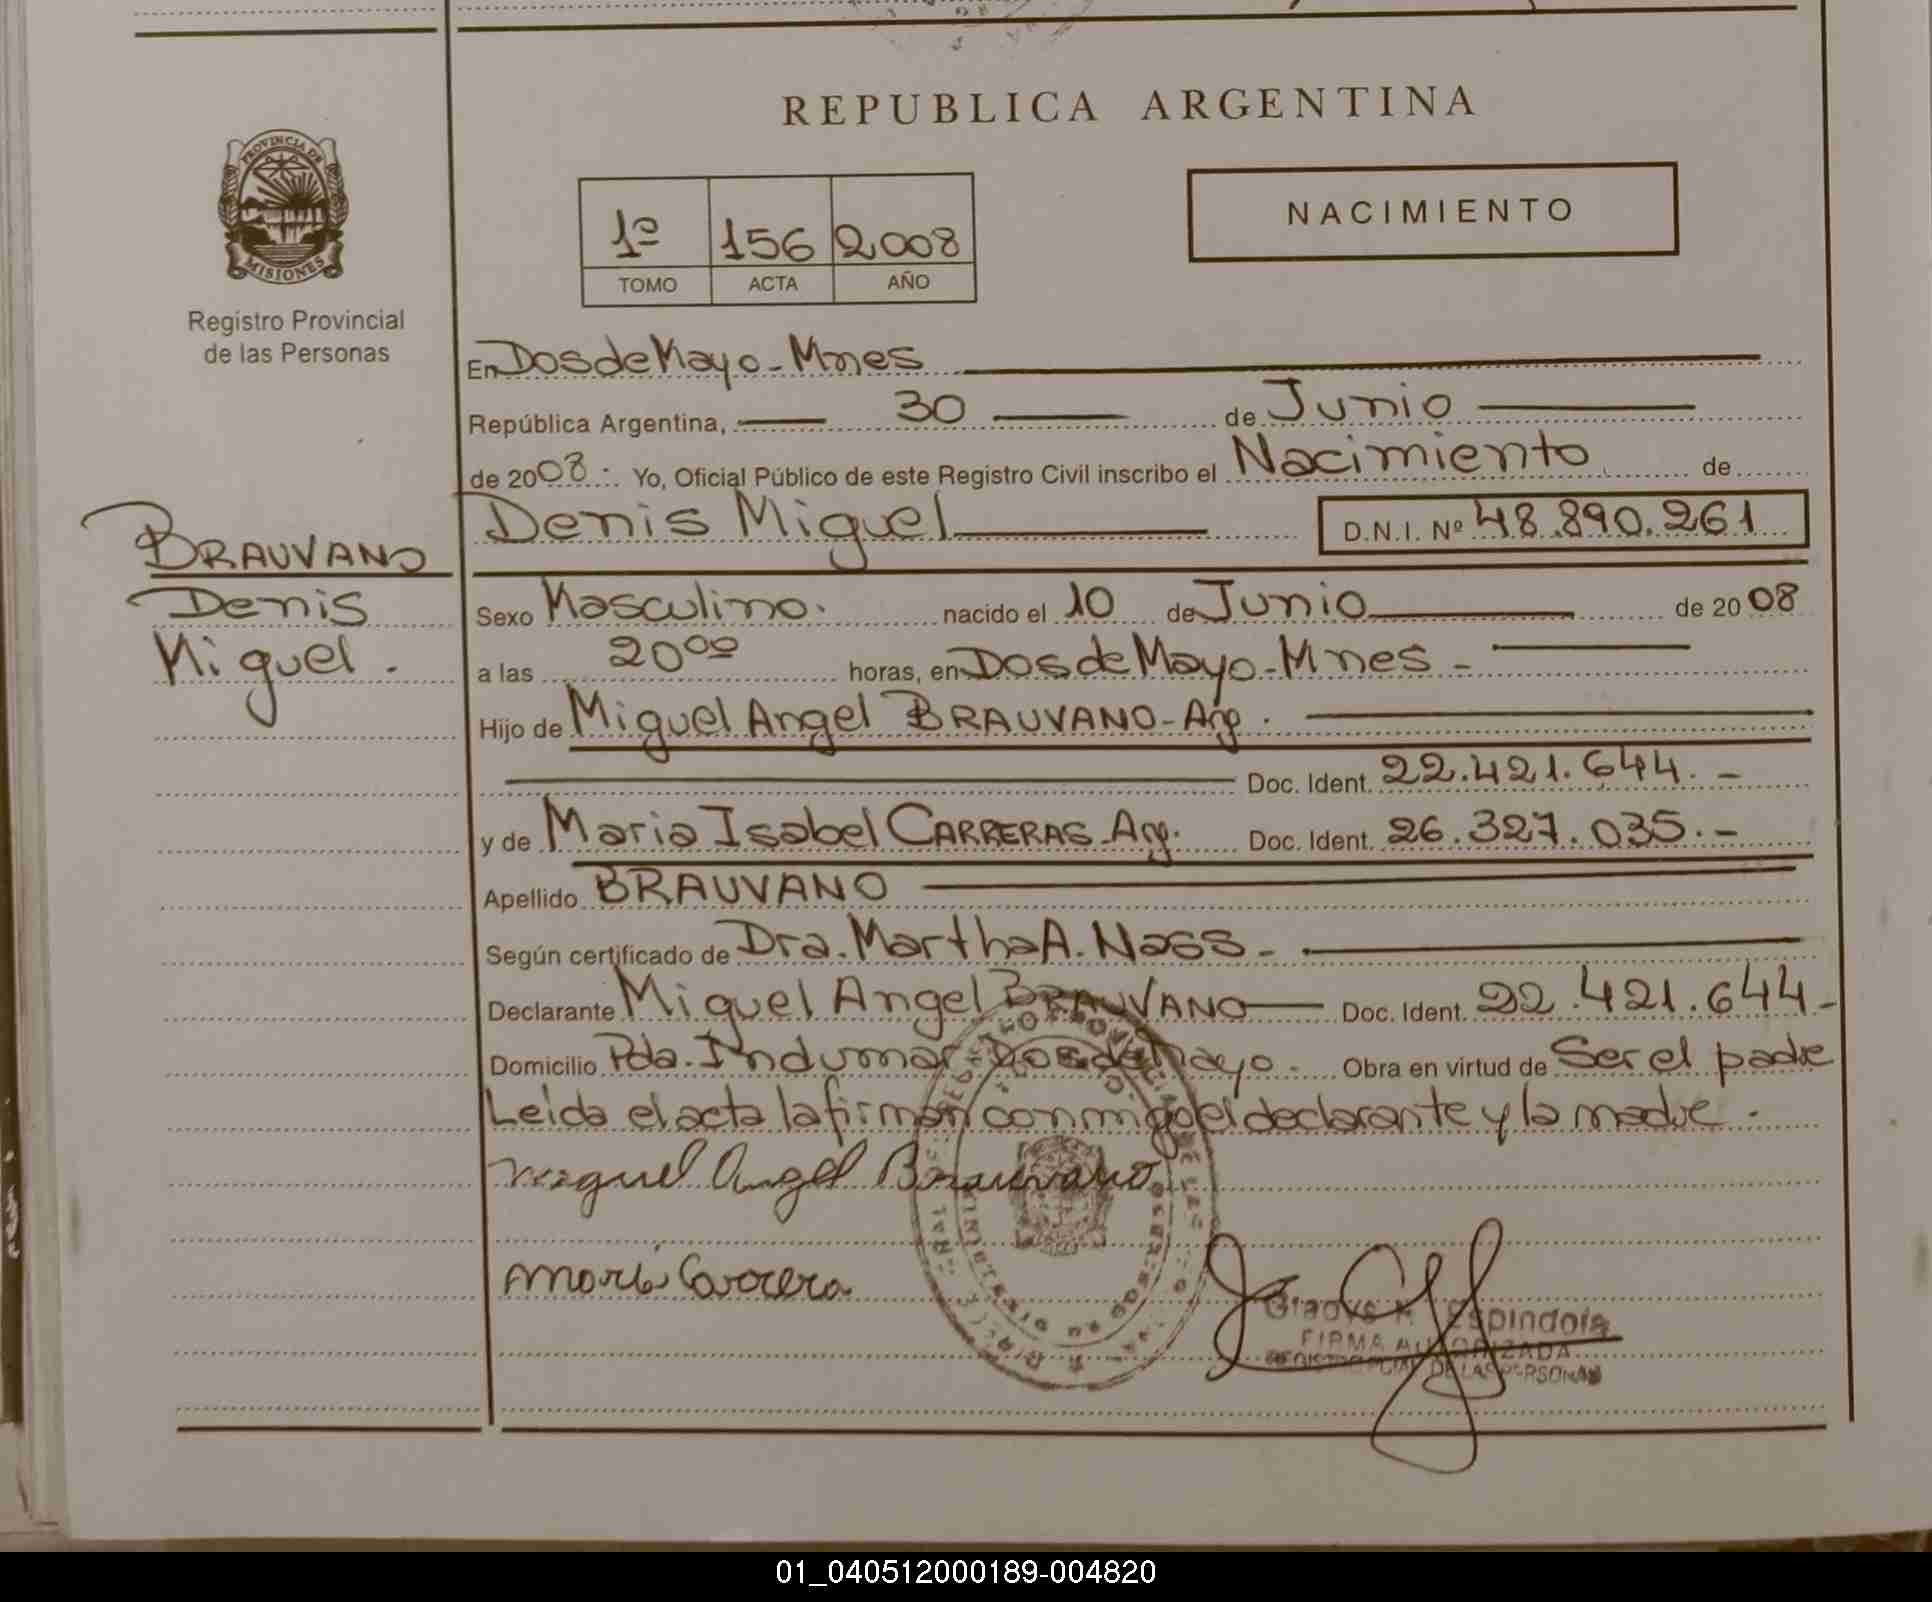 REPUBLICA ARGENTINA
PROVINCIA DE
MISIONES
Registro Provincial
de las Personas
1º 156 2008
TOMO ACTA AÑO
NACIMIENTO
En Dos de Mayo - Mnes
República Argentina, 30 de Junio
de 2008. Yo, Oficial Público de este Registro Civil inscribo el Nacimiento de
Denis Miguel D.N.I. Nº 48.890.261
BRAUVANO
Denis
Miguel.
Sexo Masculino. nacido el 10 de Junio de 2008
a las 20⁰⁰ horas, en Dos de Mayo - Mnes -
Hijo de Miguel Angel BRAUVANO - Arg.
Doc. Ident. 22.421.644. -
y de Maria Isabel CARRERAS - Arg. Doc. Ident. 26.327.035. -
Apellido BRAUVANO
Según certificado de Dra. Martha A. Nass -
Declarante Miguel Angel BRAUVANO Doc. Ident. 22.421.644 -
Domicilio Pda. Indumar Dos de Mayo. Obra en virtud de Ser el padre
Leida el acta la firman conmigo el declarante y la madre.
Miguel Angel Brauvano
Maria Carrera
Gladys Espindola
FIRMA AUTORIZADA
DE LAS PERSONAS
01_040512000189-004820